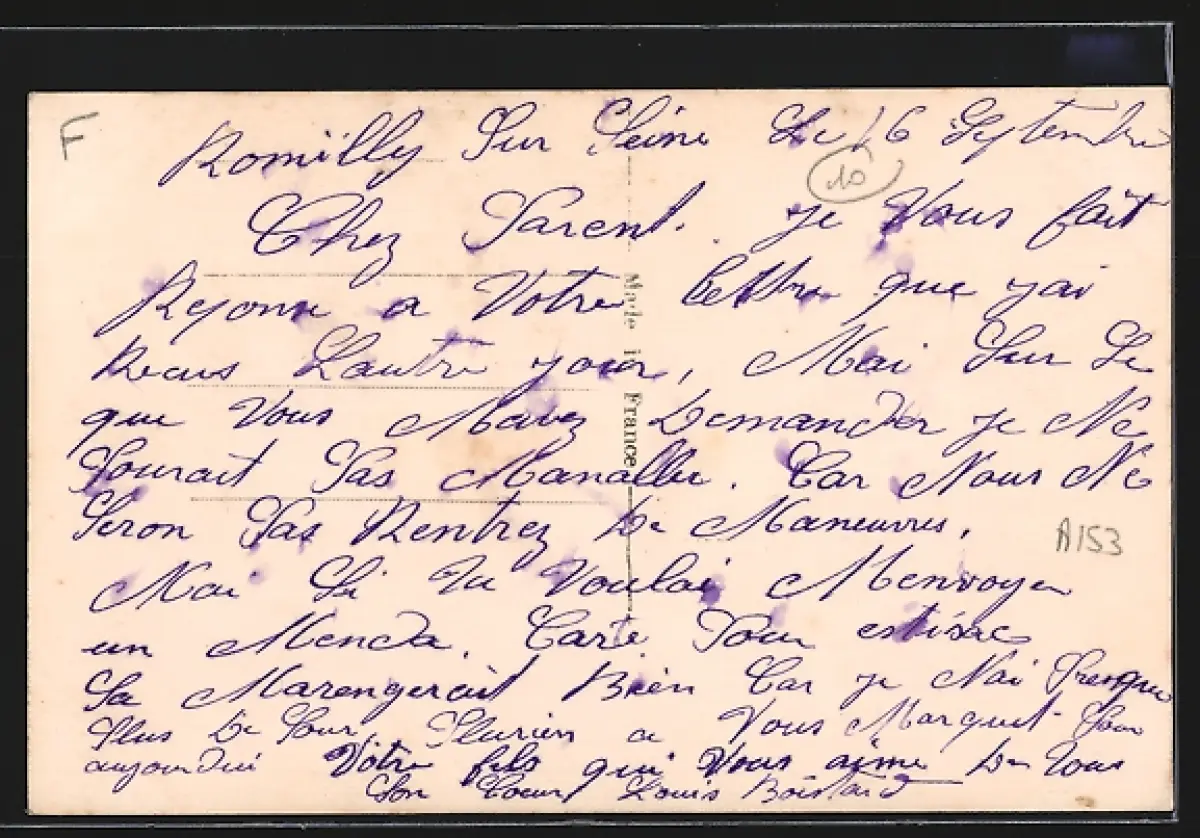 F
Romilly Sur Seine Le 16 Septembre
10
Chez Parent. je Vous fait
Reponse a Votre lettre que jai
Recus Lautre jour, Mai Sur Se
que Vous Mavez Demander je Ne
Pourait Pas Manaller. Car Nous Ne
Seron Pas Rentrez De Maneuvres.
A153
Mai Si Tu Voulai Menvoyer
un Menda. Carte Pour
Sa Marengerait Bien Car je Nai Presque
Plus De Sous. Plurien a Vous Marquet Pour
aujourdui Votre fils qui Vous aime De Tous
Son Coeur Louis Boistard
Made in France